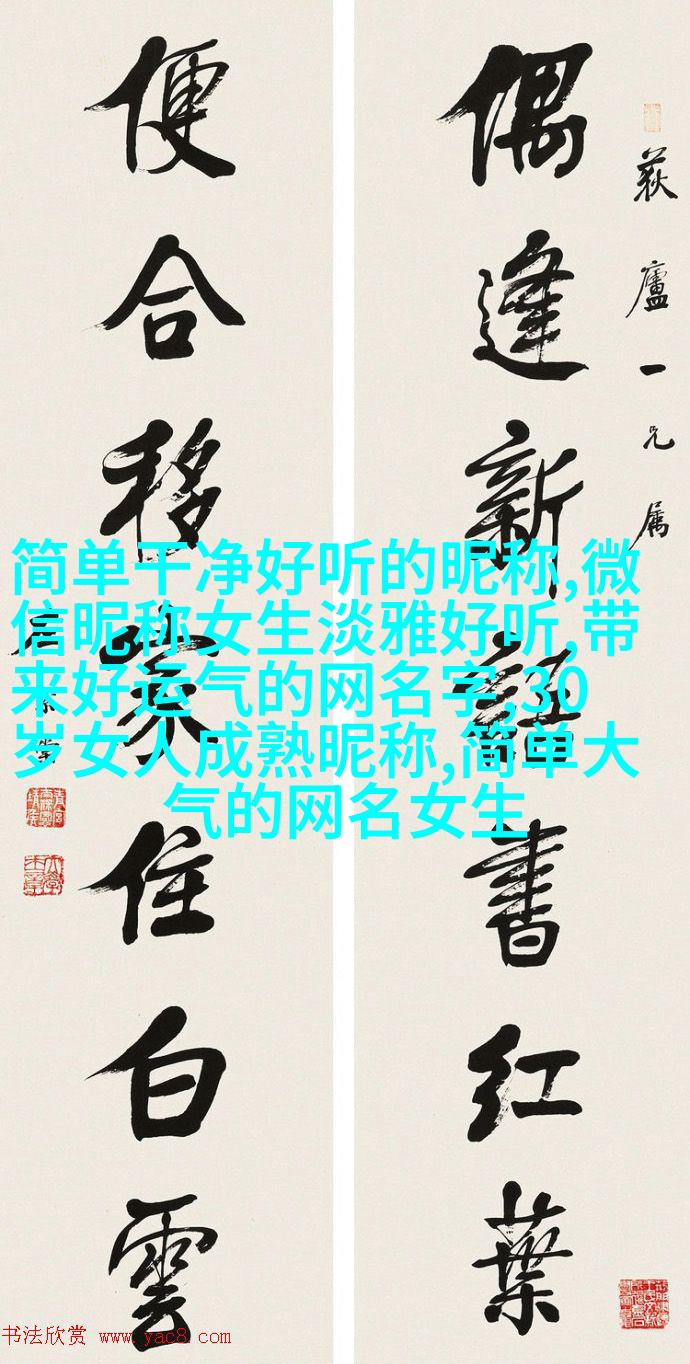 荻廬一兄属
偶逢新書紅葉
便合移家住白雲
简单干净好听的昵称,微
信昵称女生淡雅好听,带
来好运气的网名字,30
岁女人成熟昵称,简单大
气的网名女生
书法欣赏 www.yac8.com